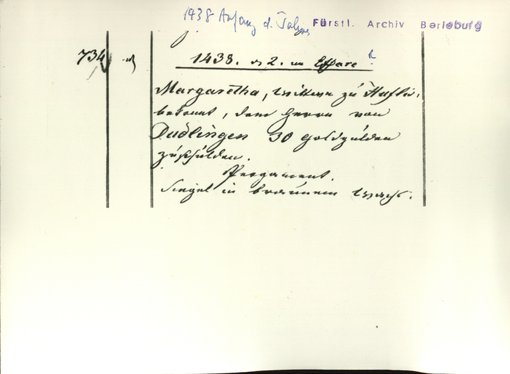 1438 Anfang d. Jahres Fürstl. Archiv Berleburg
734
1438.
Margaretha, Wittwe zu
bekennt, dem Herrn von
Dudlingen 30 Goldgulden
zu schulden.
Pergament.
Siegel in braunem Wachs.